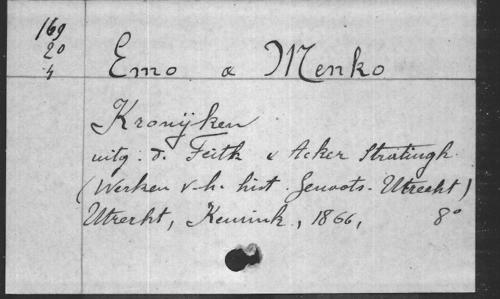 169
20
4
Emo & Menko
Kronijken
uitg. d. Feith & Acker Stratingh.
(Werken v. h. hist. Genoots. Utrecht)
Utrecht, Kemink, 1866, 8°